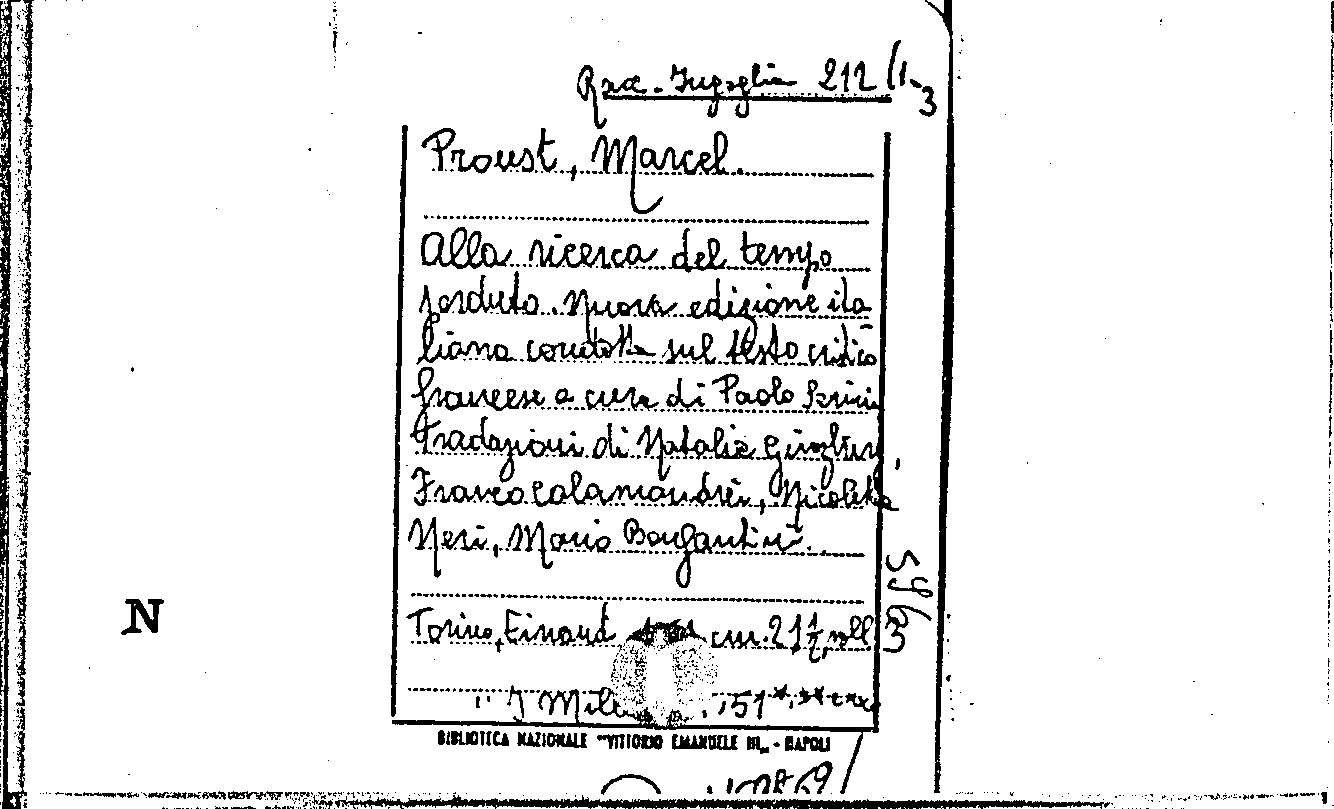 Racc. Fugaglia 212 (1-3
Proust, Marcel.
Alla ricerca del tempo
perduto. Nuova edizione ita
liana condotta sul testo critico
francese a cura di Paolo Serini
Traduzioni di Natalia Ginzburg,
Franco Calamandrei, Nicoletta
Neri, Mario Bonfantini.
Torino, Einaud cm. 21 1/2, voll 3
5963
" I Mille , 51*, **, ***
BIBLIOTECA NAZIONALE "VITTORIO EMANUELE III„ - NAPOLI
N